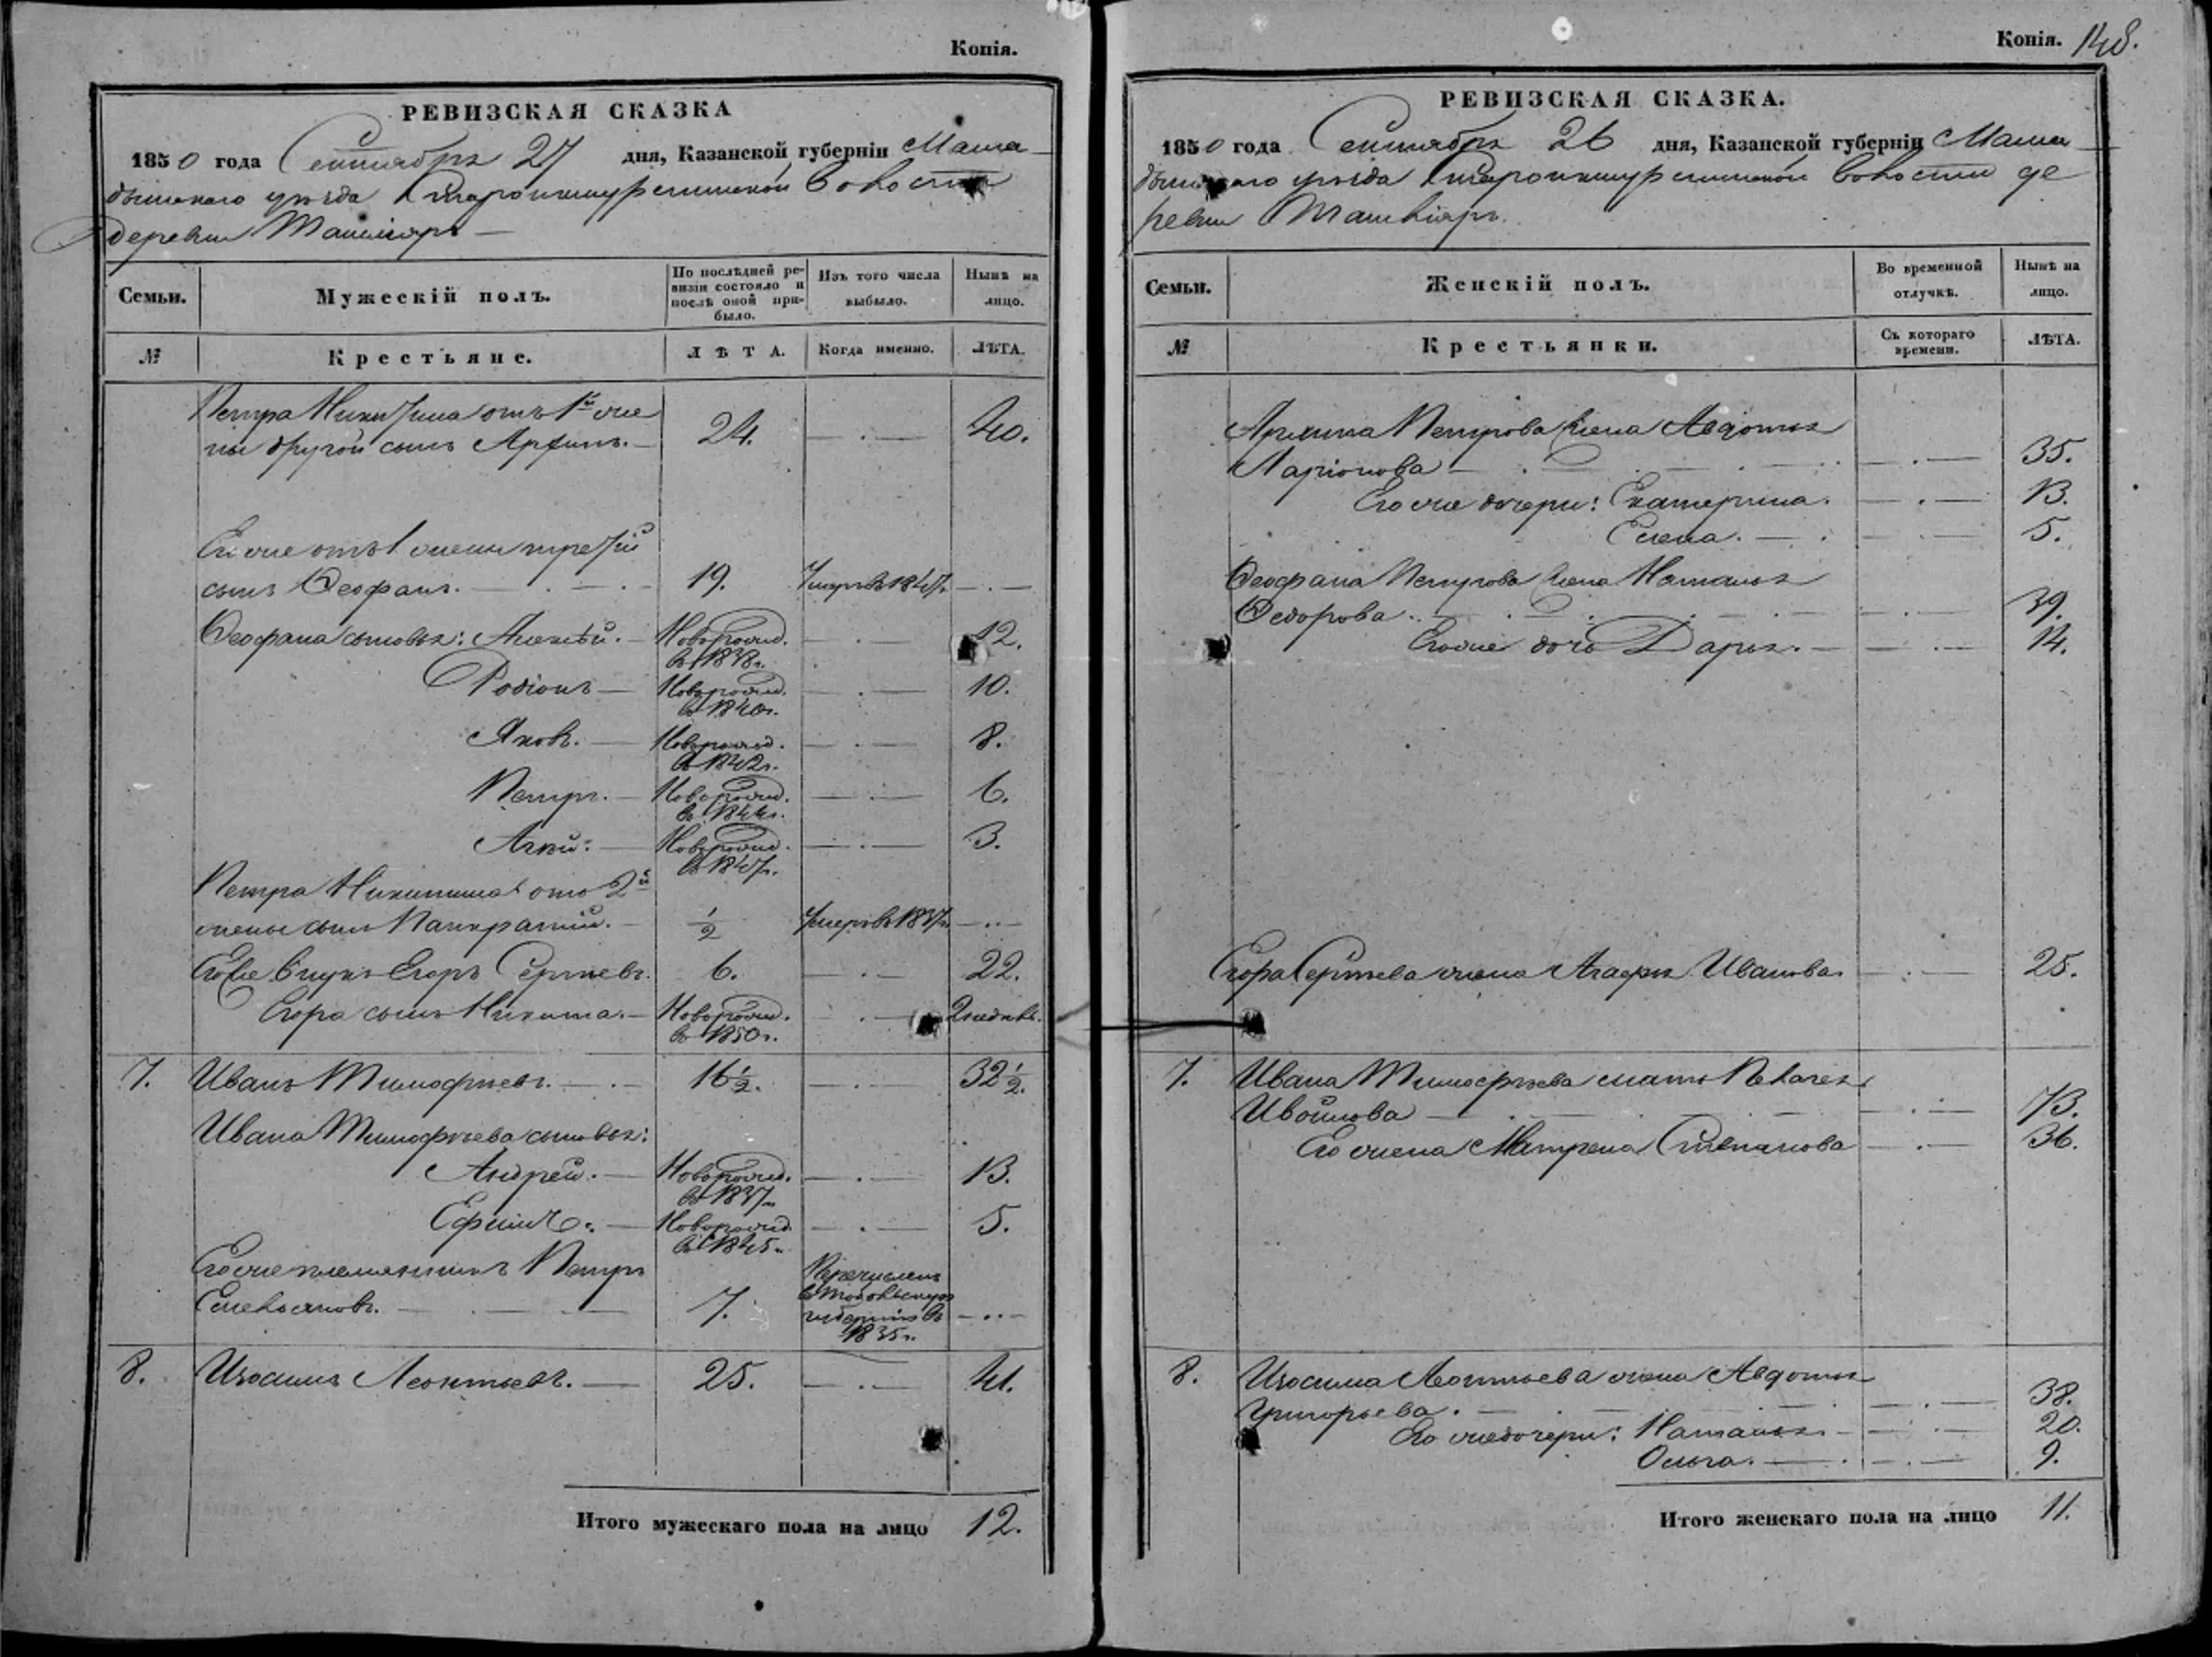 Копія.
РЕВИЗСКАЯ СКАЗКА
1850 года Сентября 27 дня, Казанской губерніи Мама-
дышскаго уѣзда волости
деревни
Семьи. Мужескій полъ. По послѣдней ре-визіи состояло и послѣ оной при-было. Изъ того числа выбыло. Нынѣ на лицо.
№ Крестьяне. ЛѢТА. Когда именно. ЛѢТА.
Петра Никитина отъ 1й же
ны другой сынъ 24. 40.
Его же отъ 1 жены третій
сынъ Ѳеофанъ. 19. Умеръ въ 1847.
Ѳеофана сыновья: Алексѣй. Новорожд. въ 1838г. 12.
Родіонъ Новорожд. въ 1840г. 10.
Яковъ. Новорожд. въ 1842г. 8.
Петръ. Новорожд. въ 1844г. 6.
Новорожд. въ 1847г. 3.
Петра Никитина отъ 2й
жены сынъ Панкратій. 1/2 Умеръ въ 1837г.
Его же внукъ Егоръ Сергѣевъ. 6. 22.
Егора сынъ Никита. Новорожд. въ 1850г. 2 недѣль.
7. Иванъ Тимофѣевъ. 16 1/2. 32 1/2.
Ивана Тимофѣева сыновья:
Андрей. Новорожд. въ 1837г. 13.
Ефимъ. Новорожд. въ 1845г. 5.
Его же племянникъ Петръ
Емельяновъ. 7. Перечисленъ въ Тобольскую губернію въ 1835г.
8. Изосимъ Леонтьевъ. 25. 41.
Итого мужескаго пола на лицо 12.
Копія. 148.
РЕВИЗСКАЯ СКАЗКА.
1850 года Сентября 26 дня, Казанской губерніи Мама
дышскаго уѣзда волости де
ревни
Семьи. Женскій полъ. Во временной отлучкѣ. Нынѣ на лицо.
№ Крестьянки. Съ котораго времени. ЛѢТА.
Петрова жена Авдотья
Ларіонова 35.
Его же дочери: Екатерина. 13.
Елена. 5.
Ѳеофана Петрова жена Наталья
Ѳедорова. 39.
Его же дочь Дарья. 14.
Егора Сергѣева жена Агафья Иванова. 25.
7. Ивана Тимофѣева мать Пелагея
73.
Его жена Матрена Степанова 36.
8. Изосима Леонтьева жена Авдотья
Григорьева. 38.
Его же дочери: Наталья. 20.
Ольга. 9.
Итого женскаго пола на лицо 11.